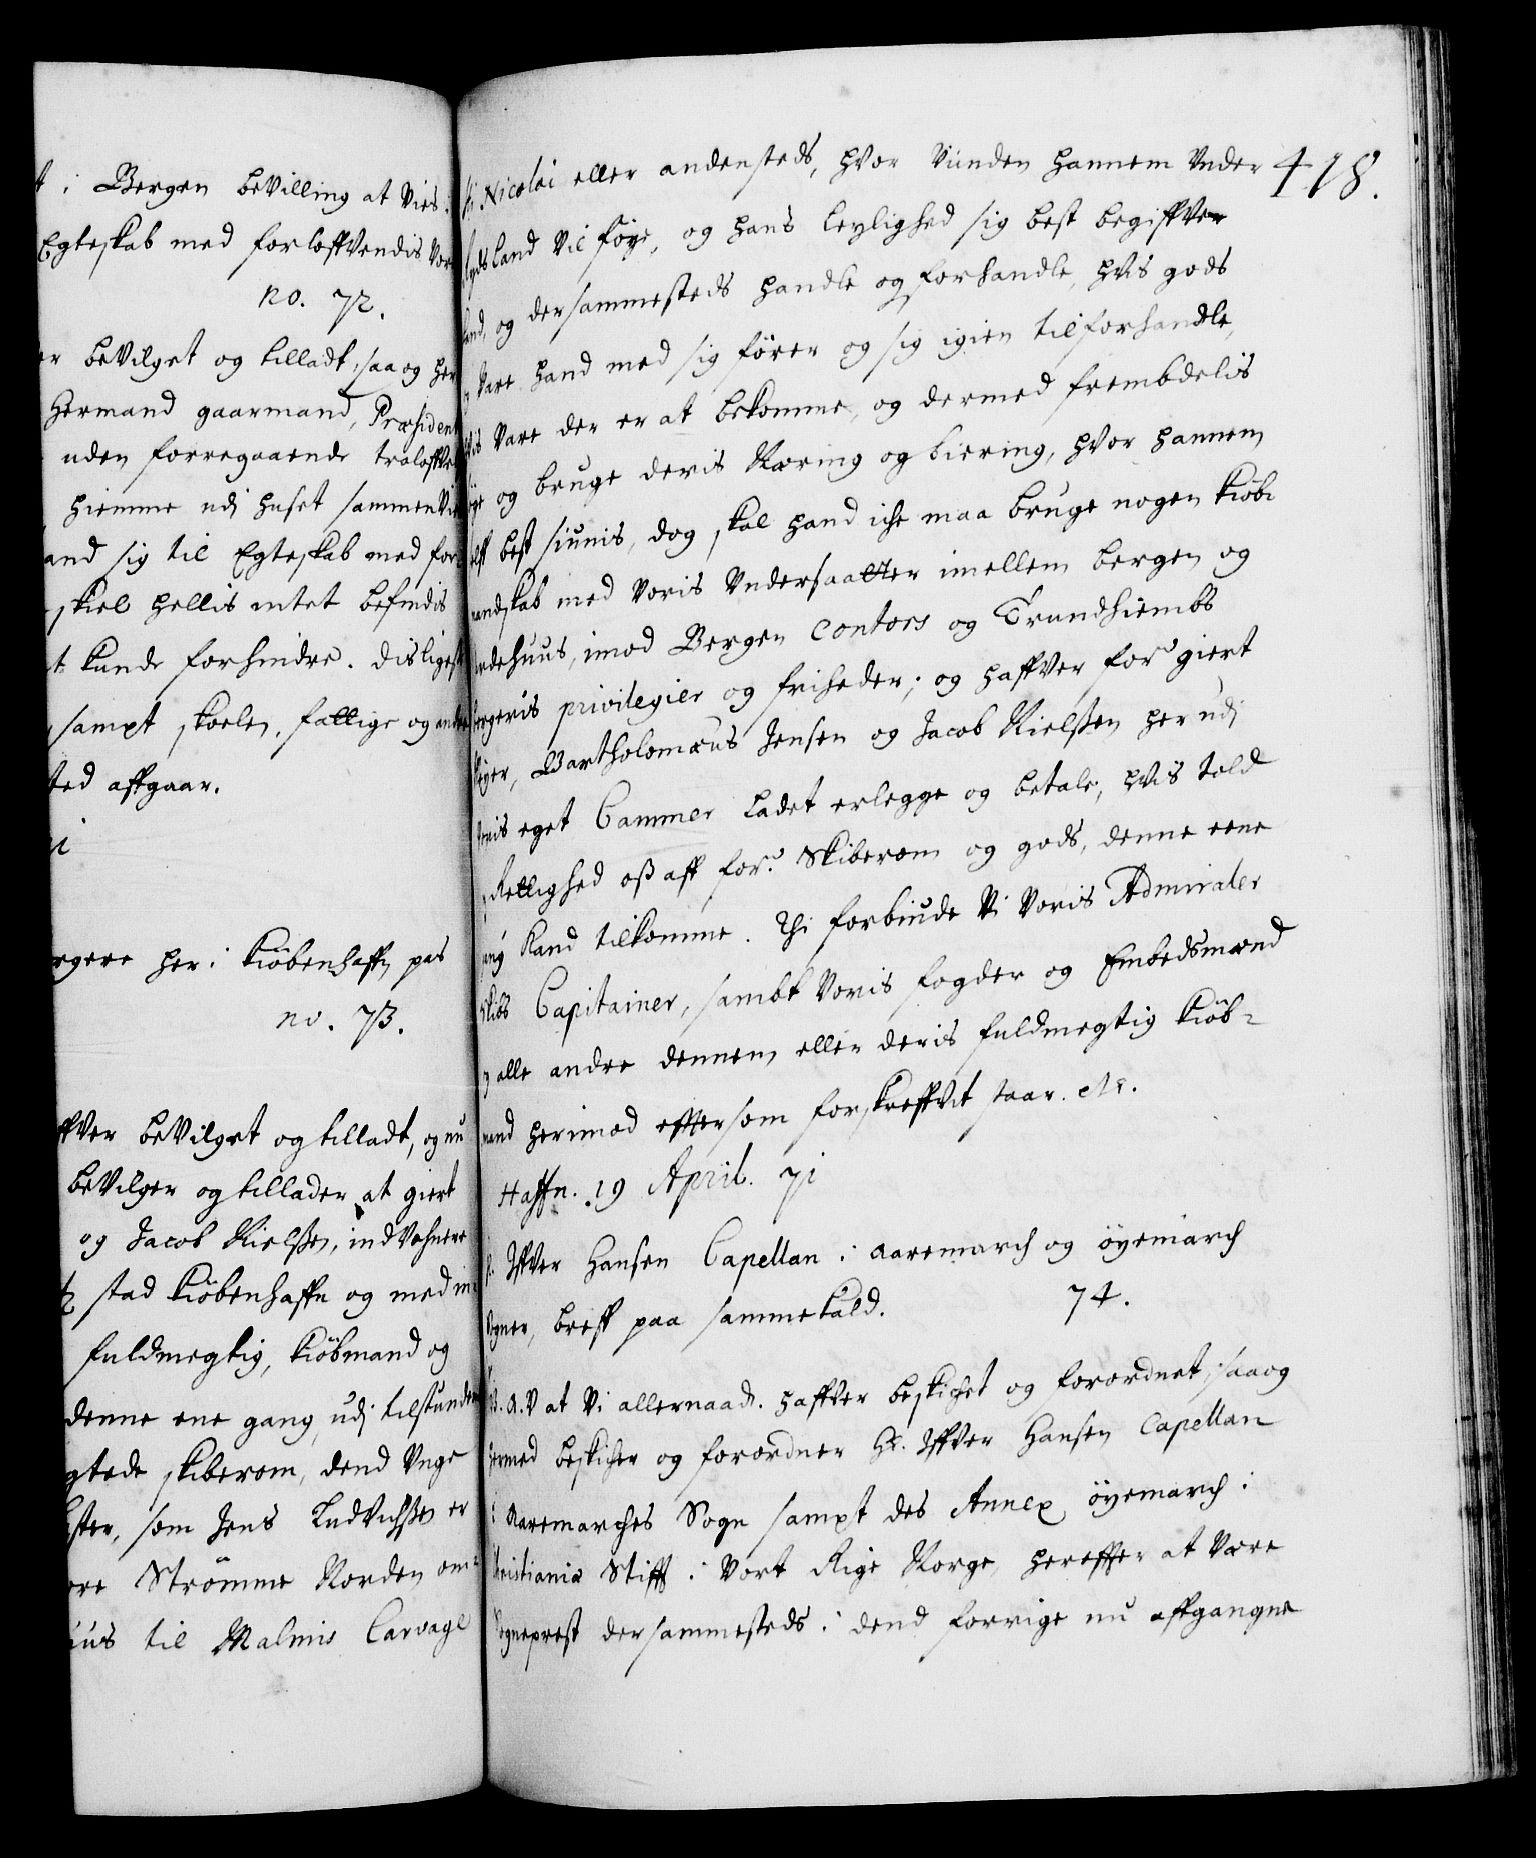 i Bergen beVilling at Vies i
Egteskab med forloffVendis Vor
no. 72.
er beVilget og tilladt, saa og her
Hermand gaarmand, Præsident
uden forregaaende troloffVel
hiemme udj huset sammenVi
and sig til Egteskab med for
skiel hellis intet befindis
t kunde forhindre. disligest
sampt skolen, fattige og andre
sted affgaar.
orgere her i Kiøbenhaffn pas
no. 73.
ffVer beVilget og tilladt, og nu
beVilger og tillader at giert
og Jacob Nielssen, indVohnere
stad Kiøbenhaffn og med in-
fuldmegtig, Kiøbmand og
denne ene gang, udj tilstunden
gtede skiberom, dend Unge
ster, som Jens LudVichssen er
ore Strømme Norden om-
uus til Malmis Carvage
478.
Nicolai eller andensteds, hVor Vinden hannem Under
Rydsland Vil føye, og hans leylighed sig best begiffVer
land, og dersammesteds handle og forhandle, hVis gods
Vare hand med sig fører og sig igien tilforhandle,
hVis Vare der er at bekomme, og dermed frembdelis
søge og bruge deris Næring og biering, hVor hannem
selff best siunis, dog skal hand iche maa bruge nogen Kiøb-
mandskab med Voris Undersaatter imellem bergen og
Vardehuus, imod Bergen Contors og Trundhiembs
borgeris privilegier og friheder; og haffVer for.e giert
Meyer, Bartholomæus Jensen og Jacob Nielssen her udj
Voris eget Cammer ladet erlegge og betale, hVis told
Rettighed oss aff for.e Skiberom og gods, denne eene
gang Kand tilkomme. Thi forbiude Vi Voris Admiraler
Skibs Capitainer, sambt Voris fogder og Embedsmænd
og alle andre dennem eller deris fuldmegtig Kiøb-
mand herimod effter som forskreffVit staar. etc.
Haffn. 19 April. 71
Hr. IffVer Hansen Capellan i Aaremarch og öyemarch
Sogner, breff paa samme Kald. 74.
G. A. V at Vi allernaad. haffVer beskichet og forordnet, saa og
hermed beskicher og forordner Hr. IffVer Hansen Capellan
i Aaremarches Sogn sampt des Annex öyemarch i
Christianiæ Stifft i Vort Rige Norge, hereffter at Være
Sogneprest dersammesteds i dend forrige nu affgangne